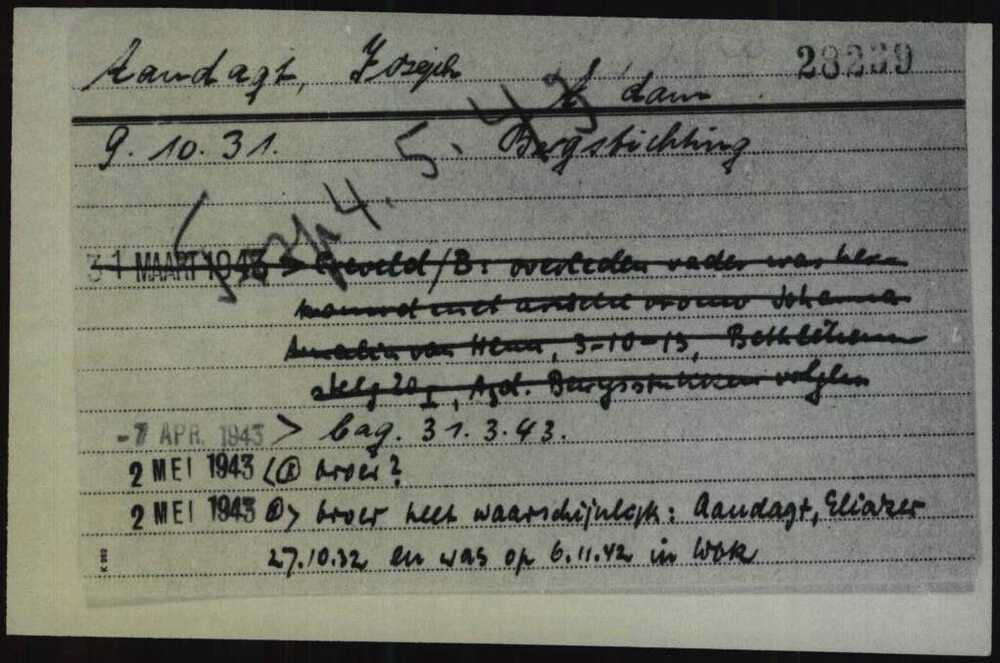 Aandagt, Joseph 28239
A'dam
9.10.31. Bergstichting
4.5.43
31 MAART 1943 > Gezeld/B: overleden vader was her-
trouwd met arische vrouw Johanna
Amalia van Henn, 3-10-13, Bethlehem-
steeg 20 I, A'd. Bergstichting volgen
-7 APR. 1943 > bag. 31.3.43.
2 MEI 1943 < (R) broer?
2 MEI 1943 (R) > broer heet waarschijnlijk: Aandagt, Eliazer
27.10.32 en was op 6.11.42 in Wbk
K 902